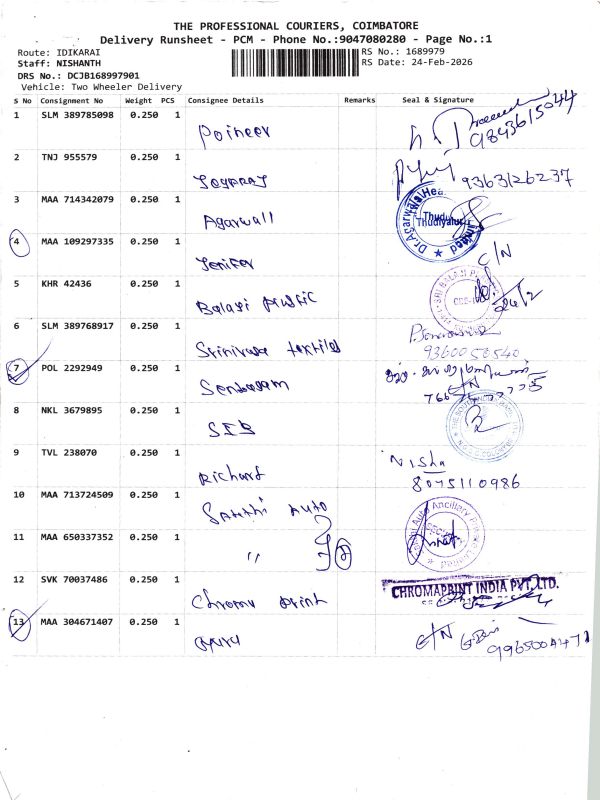 THE PROFESSIONAL COURIERS, COIMBATORE
Delivery Runsheet - PCM - Phone No.:9047080280 - Page No.:1
Route: IDIKARAI
RS No.: 1689979
Staff: NISHANTH
RS Date: 24-Feb-2026
DRS No.: DCJB168997901
Vehicle: Two Wheeler Delivery
S No Consignment No Weight PCS Consignee Details Remarks Seal & Signature
1 SLM 389785098 0.250 1 Poineer 9843615044
2 TNJ 955579 0.250 1 9363126237
3 MAA 714342079 0.250 1 Agarwall Dr.Agarwals Thudiyalur
4 MAA 109297335 0.250 1 Jenifer C/N
5 KHR 42436 0.250 1 Balaji public SRI BALAJI 24/2
6 SLM 389768917 0.250 1 Srinivasa textiles 9360050540
7 POL 2292949 0.250 1 Senbagam
8 NKL 3679895 0.250 1 SIB
9 TVL 238070 0.250 1 Richard Nisha 8075110986
10 MAA 713724509 0.250 1 Sakthi Auto Auto Ancillary
11 MAA 650337352 0.250 1 " 2
12 SVK 70037486 0.250 1 Chroma print CHROMAPRINT INDIA PVT. LTD.
13 MAA 304671407 0.250 1 Guru C/N